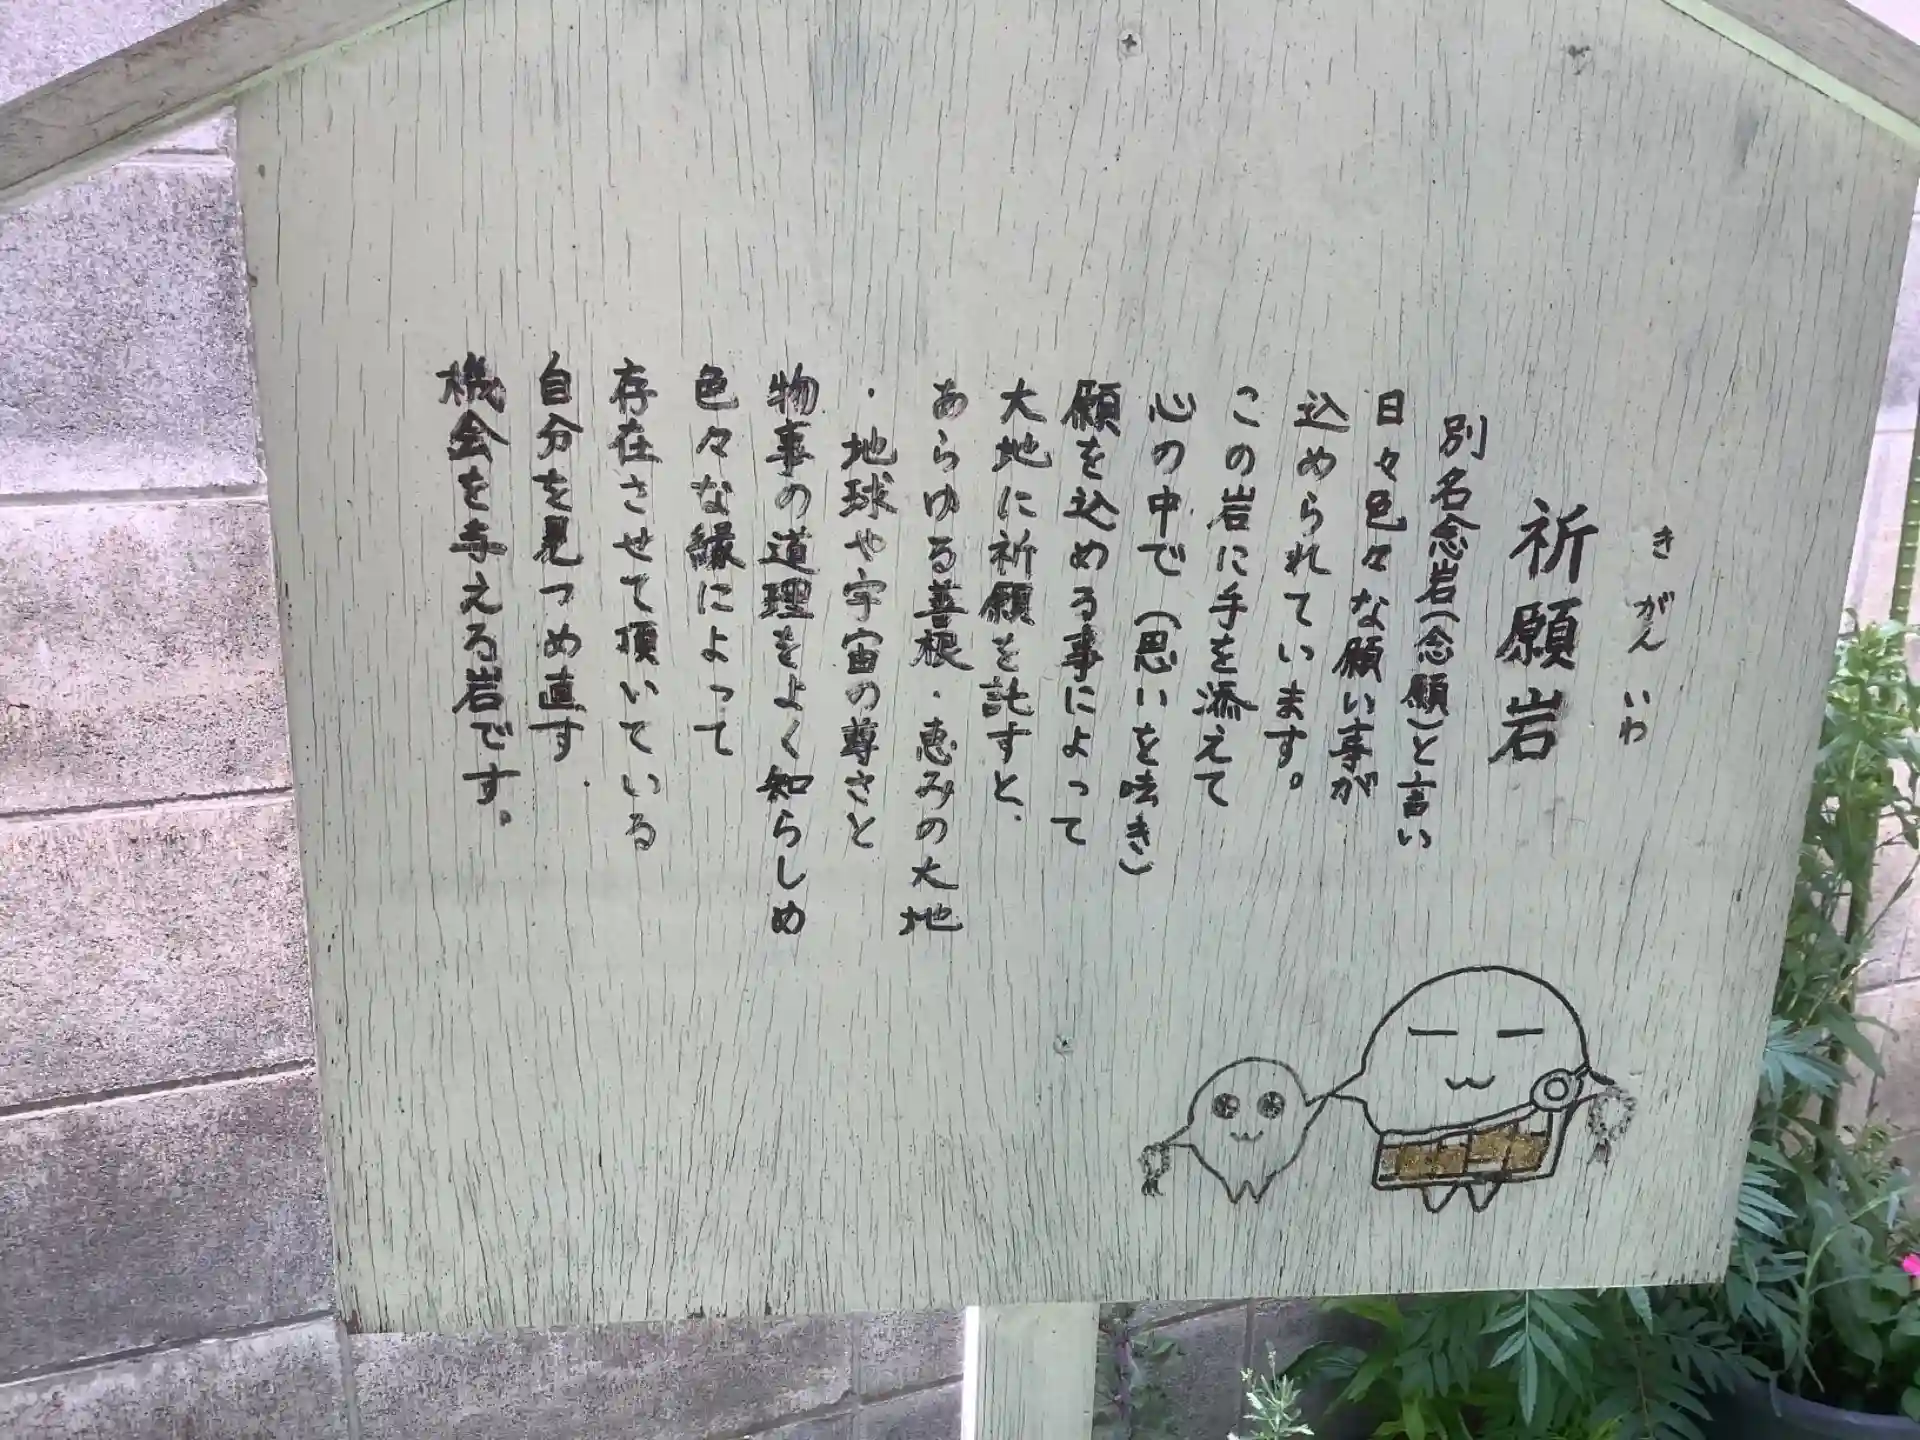 きがん いわ
祈願岩
別名念岩(念願)と言い
日々色々な願い事が
込められています。
この岩に手を添えて
心の中で(思いを呟き)
願を込める事によって
大地に祈願を託すと、
あらゆる善根・恵みの大地
・地球や宇宙の尊さと
物事の道理をよく知らしめ
色々な縁によって
存在させて頂いている
自分を見つめ直す
機会を与える岩です。